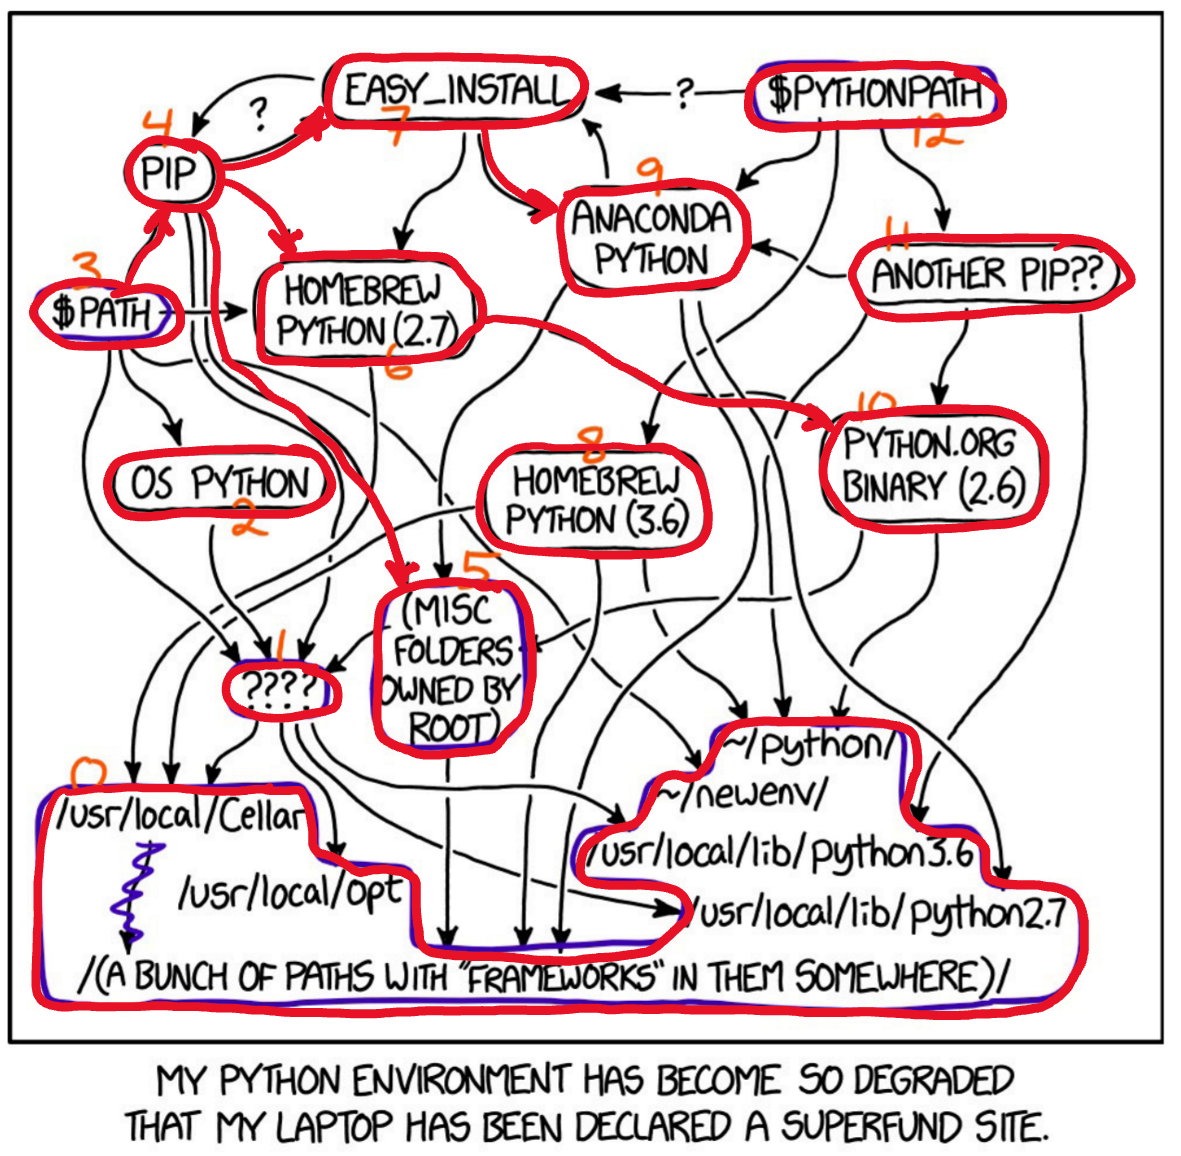 EASY_INSTALL
7
?
$PYTHONPATH
12
?
4
PIP
9
ANACONDA
PYTHON
11
ANOTHER PIP??
3
$PATH
HOMEBREW
PYTHON (2.7)
6
10
PYTHON.ORG
BINARY (2.6)
OS PYTHON
2
8
HOMEBREW
PYTHON (3.6)
5
(MISC
FOLDERS
OWNED BY
ROOT)
1
????
0
/usr/local/Cellar
/usr/local/opt
~/python/
~/newenv/
/usr/local/lib/python3.6
/usr/local/lib/python2.7
/(A BUNCH OF PATHS WITH "FRAMEWORKS" IN THEM SOMEWHERE)/
MY PYTHON ENVIRONMENT HAS BECOME SO DEGRADED
THAT MY LAPTOP HAS BEEN DECLARED A SUPERFUND SITE.